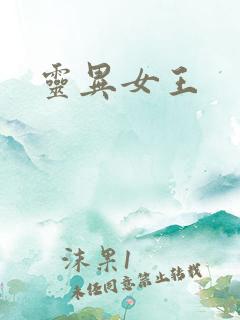 靈異女王
沫果1
未经同意禁止转载